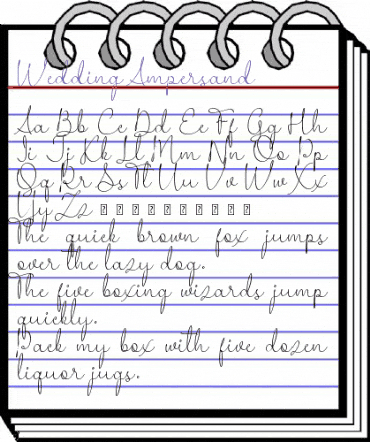 Wedding Ampersand
Aa Bb Cc Dd Ee Ff Gg Hh
Ii Jj Kk Ll Mm Nn Oo Pp
Qq Rr Ss Tt Uu Vv Ww Xx
Yy Zz
The quick brown fox jumps
over the lazy dog.
The five boxing wizards jump
quickly.
Pack my box with five dozen
liquor jugs.